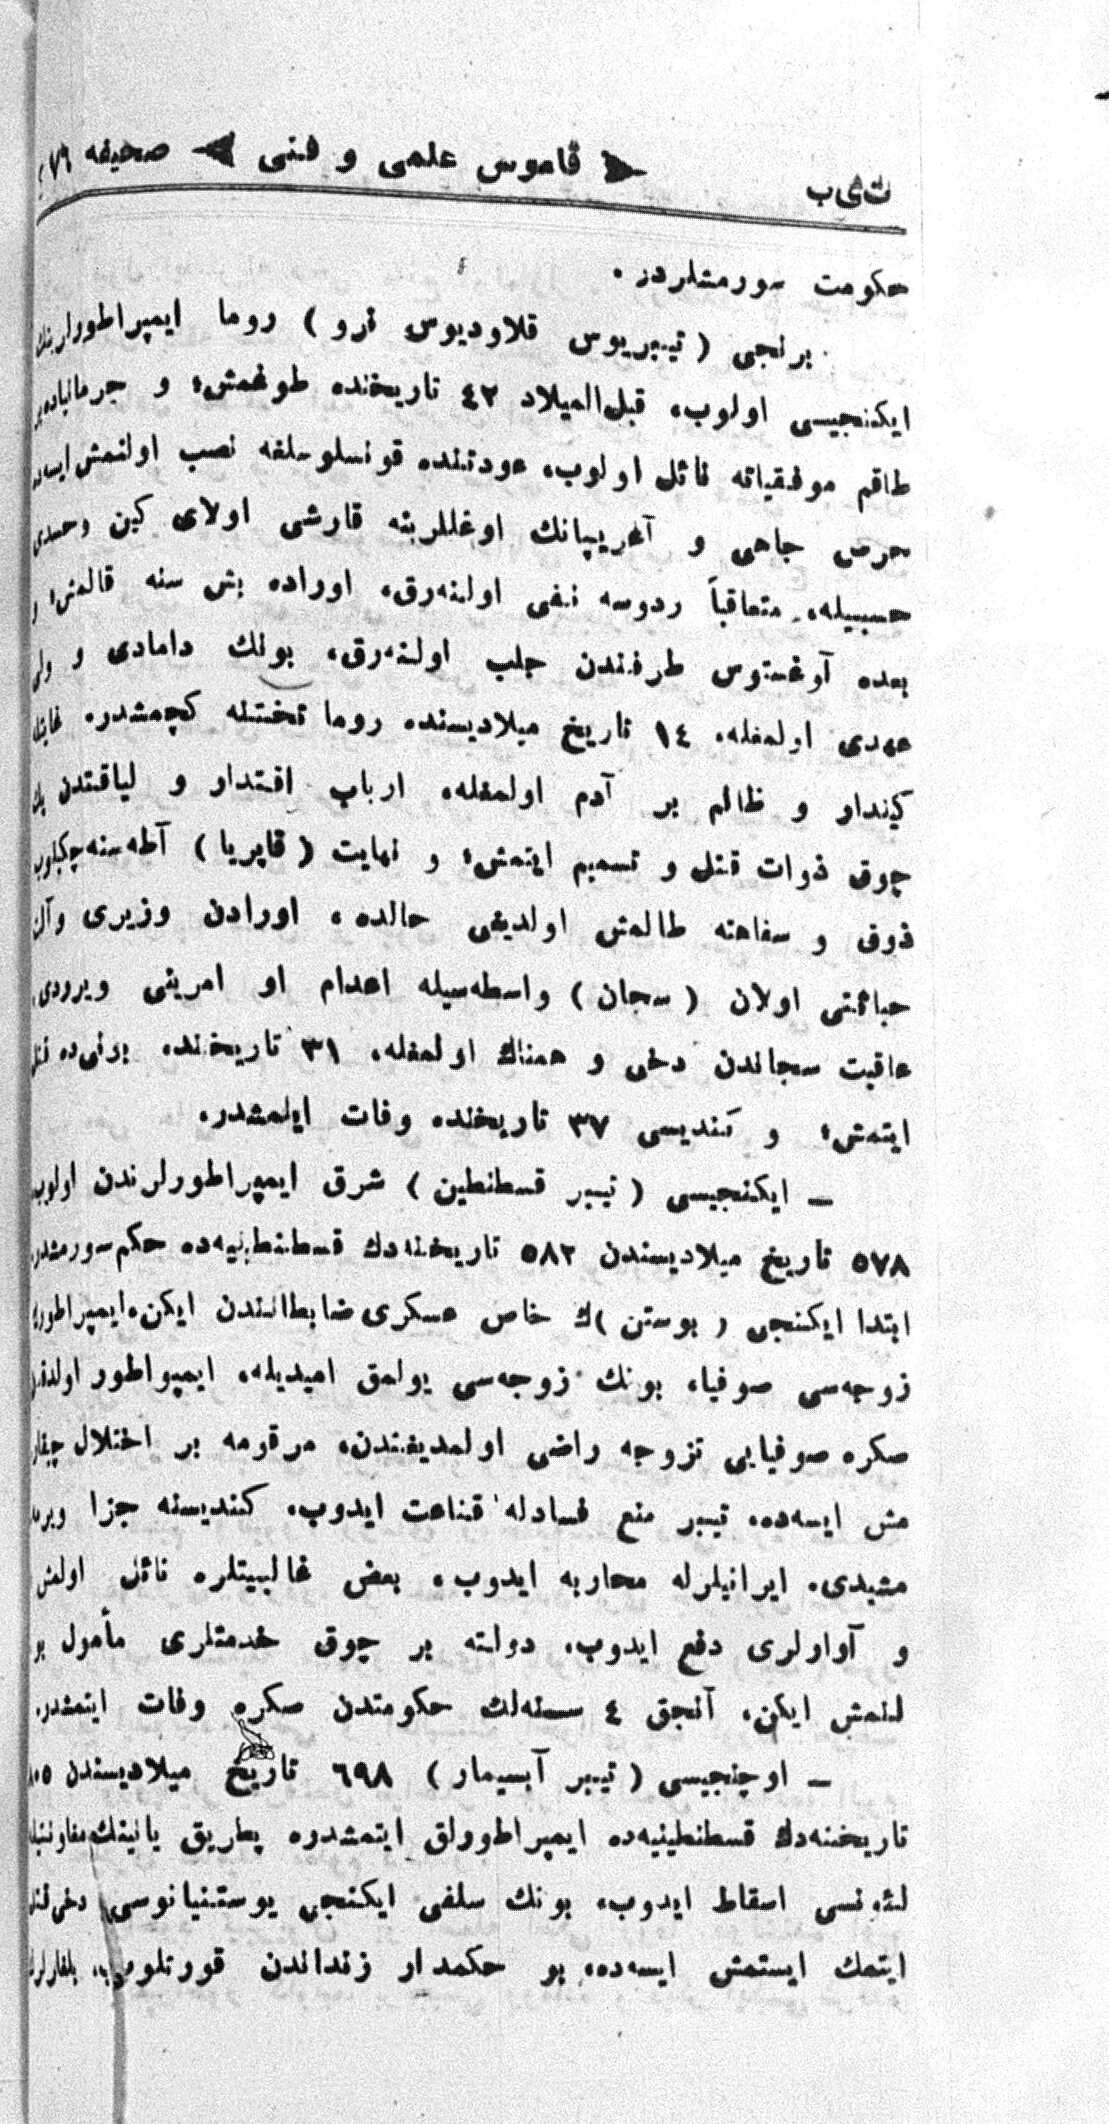 ت‌ی‌ب قاموس علمی و فنی صحیفه
حکومت سورمشلردر.
برنجی (تیبریوس قلاودیوس نرو) روما ایمپراطورلرینك
ایکنجیسی اولوب، قبل‌المیلاد ٤٢ تاریخنده طوغمش؛ و جرمانیاده بر
طاقم موفقیاته نائل اولوب، عودتنده قونسلوسلغه نصب اولنمش ایسه‌ده،
حرص جاهی و آغریپانك اوغللرینه قارشی اولان كین وحسدی
حسبیله، متعاقباً ردوسه نفی اولنه‌رق، اوراده بش سنه قالمش؛ و
بعده آوغستوس طرفندن جلب اولنه‌رق، بونك دامادی و ولی
عهدی اولمغله، ١٤ تاریخ میلادیسنده روما تختنه کچمشدر. غایتله
کیندار و ظالم بر آدم اولمغله، ارباب اقتدار و لیاقتدن پك
چوق ذوات قتل و تسمیم ایتمش؛ و نهایت (قاپریا) آطه‌سنه چکیلوب
ذوق و سفاهته طالمش اولدیغی حالده، اورادن وزیری وآلت
خباثتی اولان (سجان) واسطه‌سیله اعدام او امرینی ویرردی.
عاقبت سجاندن دخی و همناك اولمغله، ٣١ تاریخنده بونی‌ده قتل
ایتمش؛ و كندیسی ٣٧ تاریخنده وفات ایلمشدر.
— ایکنجیسی (تیبر قسطنطین) شرق ایمپراطورلرندن اولوب،
٥٧٨ تاریخ میلادیسندن ٥٨٢ تاریخنه‌دك قسطنطینیه‌ده حکم سورمشدر.
ابتدا ایکنجی (یوستن)ك خاص عسکری ضابطانندن ایکن، ایمپراطورك
زوجه‌سی صوفیا، بونك زوجه‌سی یولمق امیدیله، ایمپراطور اولدقدن
صکره صوفیایی تزوجه راضی اولمدیغندن، مرقومه بر اختلال چیقار
مش ایسه‌ده، تیبر منع فسادله قناعت ایدوب، کندیسنه جزا ویرمه
مشیدی. ایرانیلرله محاربه ایدوب، بعض غالبیتلره نائل اولمش
و آوارلری دفع ایدوب، دولته بر چوق خدمتلری مأمول بو
لنمش ایکن، آنجق ٤ سنه‌لك حکومتدن صکره وفات ایتمشدر.
— اوچنجیسی (تیبر آبسیمار) ٦٩٨ تاریخ میلادیسندن
تاریخنه‌دك قسطنطینیه‌ده ایمپراطورلق ایتمشدر. پطریق یانینك معاونتیله
لئونسی اسقاط ایدوب، بونك سلفی ایکنجی یوستنیانوسی دخی قتل
ایتمك ایستمش ایسه‌ده، بو حکمدار زنداندن قورتلوب، بلغارلرك